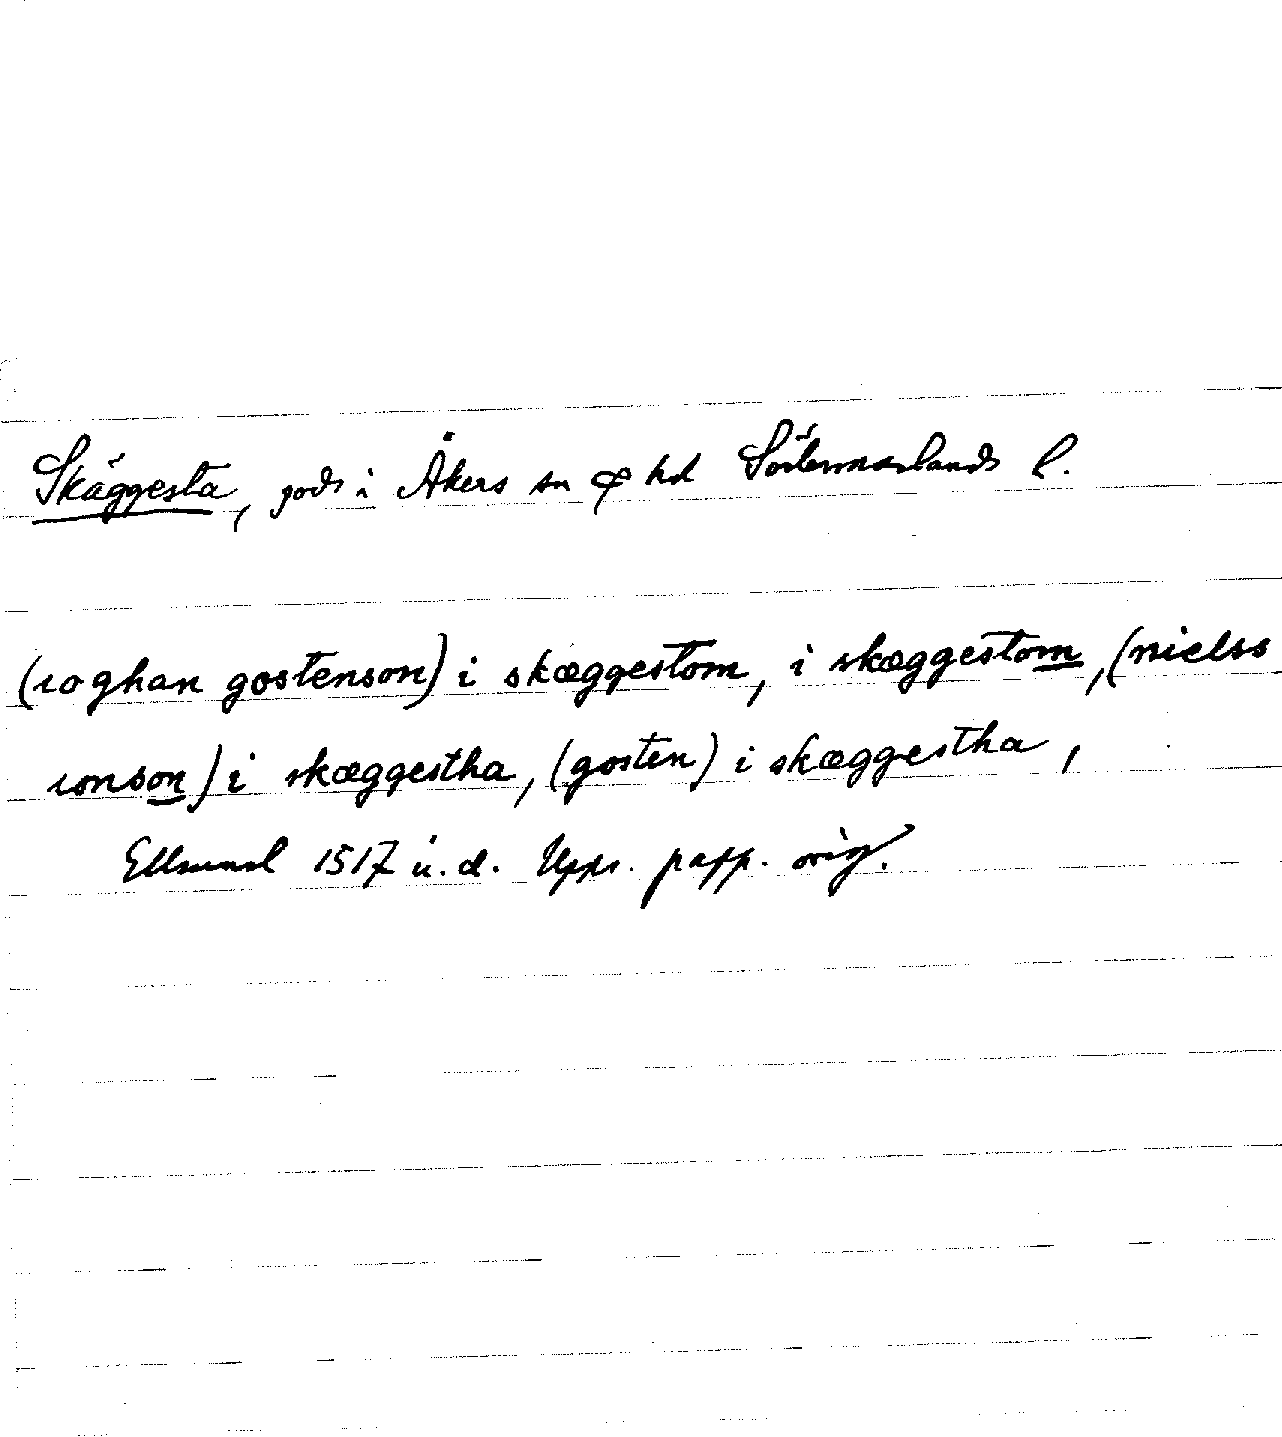 Skäggesta, gods i Åkers sn o hd Södermanlands l.
(ioghan gostenson) i skæggestom, i skæggestom, (nielss
ionson) i skæggestha, (gosten) i skæggestha,
1517 u. d. Upps. papp. orig.